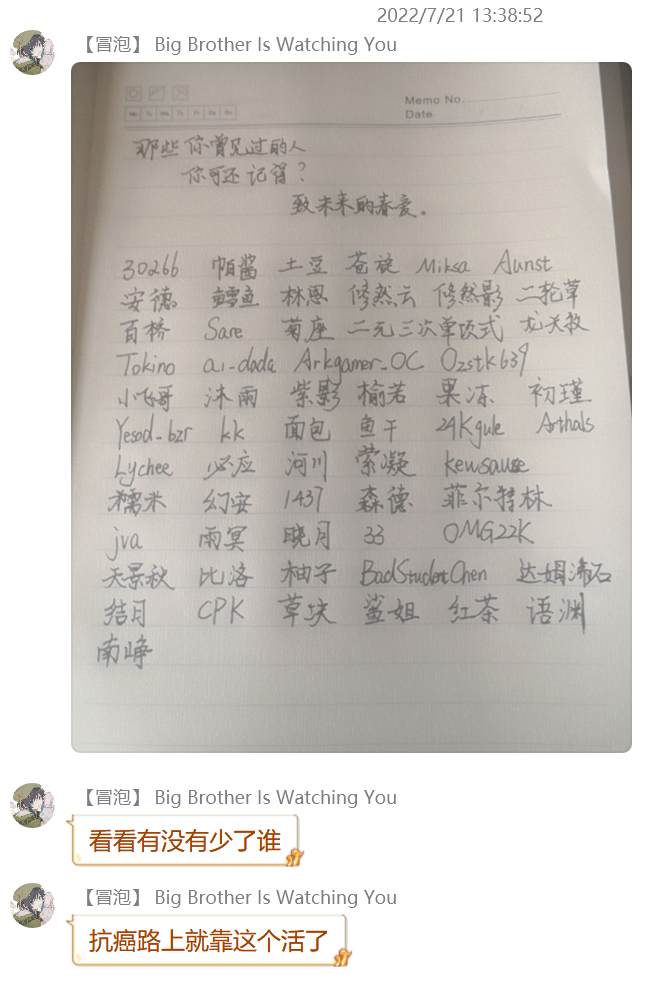 2022/7/21 13:38:52
【冒泡】 Big Brother Is Watching You
Memo No.
Mo Tu We Th Fr Sa Su
Date
那些你曾见过的人
你可还记得？
致未来的春爱。
30266 帕酱 土豆 苍旋 Miksa Aunst
安德 鳕鱼 林恩 修然云 修然影 二轮草
百桥 Sare 菊座 二元三次单项式 龙关牧
Tokino ai-dada Arkgamer_OC Ozstk639
小飞哥 沐雨 紫影 榆若 果冻 初瑾
Yesod_bzr kk 面包 鱼干 24Kgule Arthals
Lychee 必应 河川 萦凝 kewsause
糯米 幻安 1437 森德 菲尔特林
jva 雨冥 晓月 33 OMG22K
天景秋 比洛 柚子 BadStudentChen 达娟沸石
结月 CPK 草块 鲨姐 红茶 语渊
南峥
【冒泡】 Big Brother Is Watching You
看看有没有少了谁
【冒泡】 Big Brother Is Watching You
抗癌路上就靠这个活了